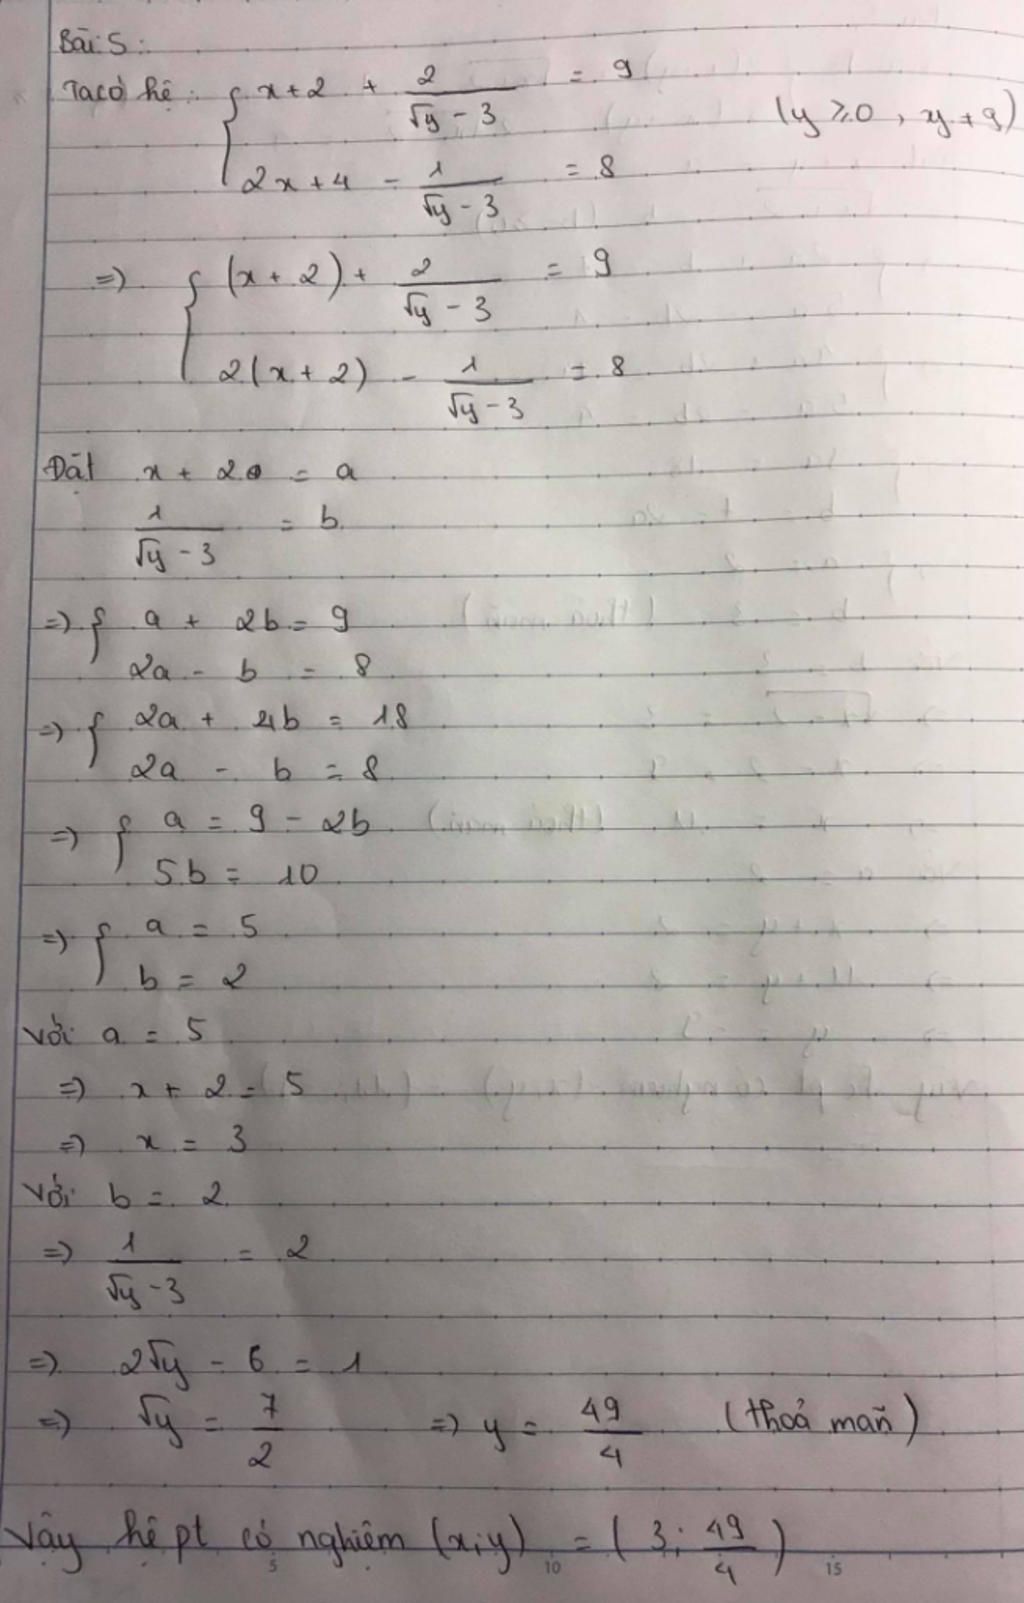 Bài 5:
Ta có hệ: { x + 2 + 2/(√y - 3) = 9
(y ≥ 0, y ≠ 9)
2x + 4 - 1/(√y - 3) = 8
=> { (x + 2) + 2/(√y - 3) = 9
2(x + 2) - 1/(√y - 3) = 8
Đặt x + 2 = a
1/(√y - 3) = b
=> { a + 2b = 9
2a - b = 8
=> { 2a + 4b = 18
2a - b = 8
=> { a = 9 - 2b
5b = 10
=> { a = 5
b = 2
Với a = 5
=> x + 2 = 5
=> x = 3
Với b = 2
=> 1/(√y - 3) = 2
=> 2√y - 6 = 1
=> √y = 7/2 => y = 49/4 (thoả mãn)
Vậy hệ pt có nghiệm (x;y) = (3; 49/4)
5 10 15